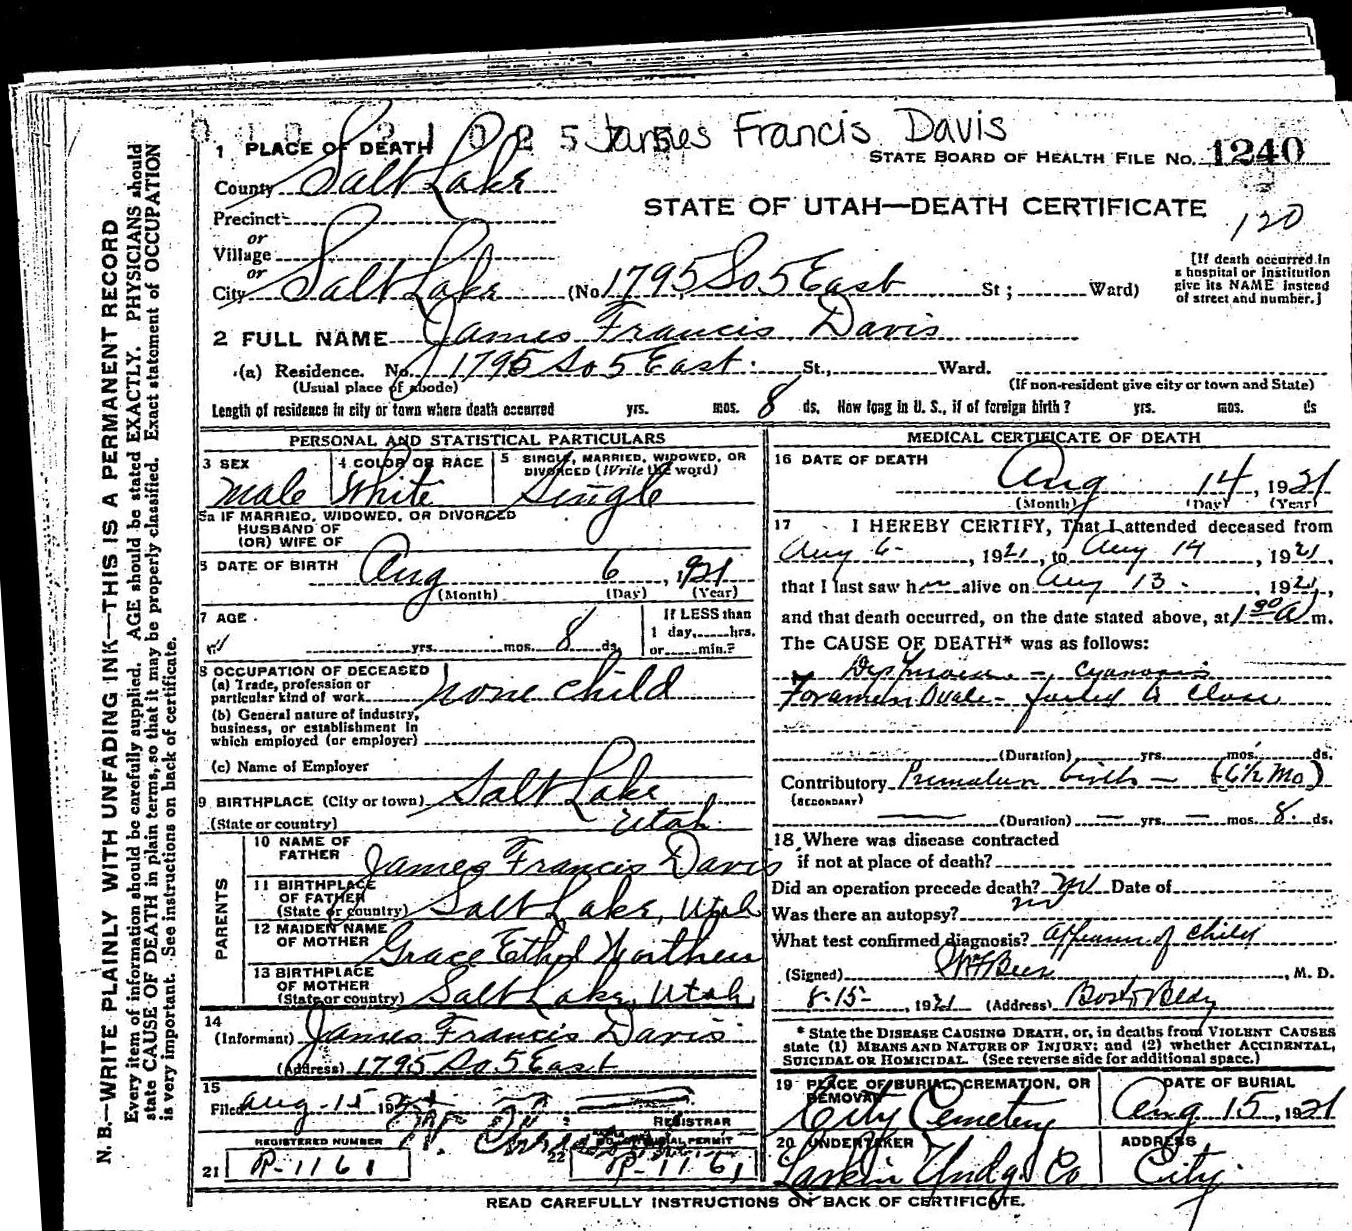 N. B.—WRITE PLAINLY WITH UNFADING INK—THIS IS A PERMANENT RECORD
Every item of information should be carefully supplied. AGE should be stated EXACTLY. PHYSICIANS should
state CAUSE OF DEATH in plain terms, so that it may be properly classified. Exact statement of OCCUPATION
is very important. See instructions on back of certificate.
James Francis Davis
1 PLACE OF DEATH
STATE BOARD OF HEALTH FILE NO. 1240
County Salt Lake
STATE OF UTAH—DEATH CERTIFICATE
120
Precinct
or
Village
or
City Salt Lake (No. 1795 So 5 East St; Ward)
[If death occurred in
a hospital or institution
give its NAME instead
of street and number.]
2 FULL NAME James Francis Davis
(a) Residence. No. 1795 So 5 East St., Ward.
(Usual place of abode) (If non-resident give city or town and State)
Length of residence in city or town where death occurred yrs. mos. 8 ds. How long in U. S., if of foreign birth? yrs. mos. ds
PERSONAL AND STATISTICAL PARTICULARS
3 SEX
Male
4 COLOR OR RACE
White
5 SINGLE, MARRIED, WIDOWED, OR
DIVORCED (Write the word)
Single
5a IF MARRIED, WIDOWED, OR DIVORCED
HUSBAND OF
(OR) WIFE OF
6 DATE OF BIRTH Aug 6, 1921
(Month) (Day) (Year)
7 AGE
yrs. mos. 8 ds.
If LESS than
1 day, hrs.
or min.?
8 OCCUPATION OF DECEASED
(a) Trade, profession or
particular kind of work none child
(b) General nature of industry,
business, or establishment in
which employed (or employer)
(c) Name of Employer
9 BIRTHPLACE (City or town) Salt Lake
(State or country) Utah
PARENTS
10 NAME OF
FATHER James Francis Davis
11 BIRTHPLACE
OF FATHER
(State or country) Salt Lake, Utah
12 MAIDEN NAME
OF MOTHER Grace Ethel
13 BIRTHPLACE
OF MOTHER
(State or country) Salt Lake, Utah
14
(Informant) James Francis Davis
(Address) 1795 So. 5 East
15
Filed Aug-15 1921
REGISTRAR
REGISTERED NUMBER
21 P-1161
22 P-1161
MEDICAL CERTIFICATE OF DEATH
16 DATE OF DEATH
Aug 14, 1921
(Month) (Day) (Year)
17 I HEREBY CERTIFY, That I attended deceased from
Aug 6-, 1921, to Aug 14, 1921
that I last saw him alive on Aug 13-, 1921,
and that death occurred, on the date stated above, at 1 30 A m.
The CAUSE OF DEATH* was as follows:
Dyspnoea - Cyanosis
Foramen Ovale- failed to close
(Duration) yrs. mos. ds.
Contributory Premature birth - (6½ Mo)
(SECONDARY)
(Duration) yrs. mos. 8. ds.
18 Where was disease contracted
if not at place of death?
Did an operation precede death? no Date of
Was there an autopsy? no
What test confirmed diagnosis? of child
(Signed) , M. D.
8-15-, 1921 (Address)
* State the DISEASE CAUSING DEATH, or, in deaths from VIOLENT CAUSES
state (1) MEANS AND NATURE OF INJURY; and (2) whether ACCIDENTAL,
SUICIDAL OR HOMICIDAL. (See reverse side for additional space.)
19 PLACE OF BURIAL, CREMATION, OR
REMOVAL
City Cemetery
DATE OF BURIAL
Aug 15, 1921
20 UNDERTAKER
Larkin Undg Co
ADDRESS
City.
READ CAREFULLY INSTRUCTIONS ON BACK OF CERTIFICATE.